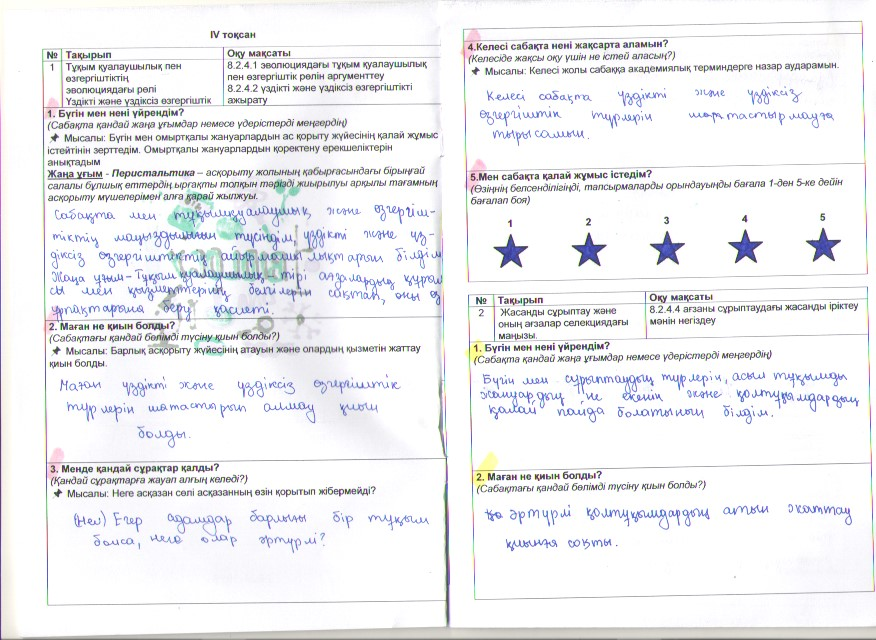 IV тоқсан
№ Тақырып Оқу мақсаты
1 Тұқым қуалаушылық пен
өзгергіштіктің
эволюциядағы рөлі
Үздікті және үздіксіз өзгергіштік
8.2.4.1 эволюциядағы тұқым қуалаушылық
пен өзгергіштік рөлін аргументтеу
8.2.4.2 үздікті және үздіксіз өзгергіштікті
ажырату
1. Бүгін мен нені үйрендім?
(Сабақта қандай жаңа ұғымдар немесе үдерістерді меңгердің)
Мысалы: Бүгін мен омыртқалы жануарлардын ас қорыту жүйесінің қалай жұмыс
істейтінін зерттедім. Омыртқалы жануарлардын қоректену ерекшеліктерін
анықтадым
Жаңа ұғым - Перистальтика – асқорыту жолының қабырғасындағы бірыңғай
салалы бұлшық еттердің ырғақты толқын тәрізді жиырылуы арқылы тағамның
асқорыту мүшелерімен алға қарай жылжуы.
Сабақта мен тұқымқуалаушылық және өзгергіш-
тіктің маңыздылығын түсіндім, үздікті және үз-
діксіз өзгергіштіктің айырмашылықтарын білдім
Жаңа ұғым - Тұқымқуалаушылық тірі ағзалардың құрылы
сы мен қызметтерінің белгілерін сақтап, оны өз
ұрпақтарына беру қасиеті.
2. Маған не қиын болды?
(Сабақтағы қандай бөлімді түсіну қиын болды?)
Мысалы: Барлық асқорыту жүйесінің атауын және олардың қызметін жаттау
қиын болды.
Маған үздікті және үздіксіз өзгергіштік
түрлерін шатастырып алмау қиын
болды.
3. Менде қандай сұрақтар қалды?
(Қандай сұрақтарға жауап алғың келеді?)
Мысалы: Неге асқазан сөлі асқазанның өзін қорытып жібермейді?
Егер адамдар барлығы бір тұқым
болса, неге олар әртүрлі?
4.Келесі сабақта нені жақсарта аламын?
(Келесіде жақсы оқу үшін не істей аласың?)
Мысалы: Келесі жолы сабаққа академиялық терминдерге назар аударамын.
Келесі сабақта үздікті және үздіксіз
өзгергіштік түрлерін шатастырмауға
тырысамын.
5.Мен сабақта қалай жұмыс істедім?
(Өзіңнің белсенділігіңді, тапсырмаларды орындауыңды бағала 1-ден 5-ке дейін
бағалап боя)
1 2 3 4 5
№ Тақырып Оқу мақсаты
2 Жасанды сұрыптау және
оның ағзалар селекциядағы
маңызы.
8.2.4.4 ағзаны сұрыптаудағы жасанды іріктеу
мәнін негіздеу
1. Бүгін мен нені үйрендім?
(Сабақта қандай жаңа ұғымдар немесе үдерістерді меңгердің)
Бүгін мен сұрыптаудың түрлерін, асыл тұқымды
жануардың не екенін және қолтұқымдардың
қалай пайда болатынын білдім.
2. Маған не қиын болды?
(Сабақтағы қандай бөлімді түсіну қиын болды?)
әртүрлі қолтұқымдардың атын жаттау
қиынға соқты.